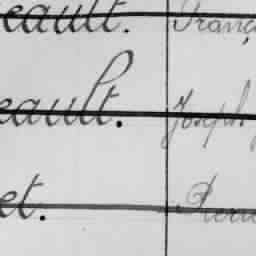 eault. Franç
eault. Joseph
et. Pierre